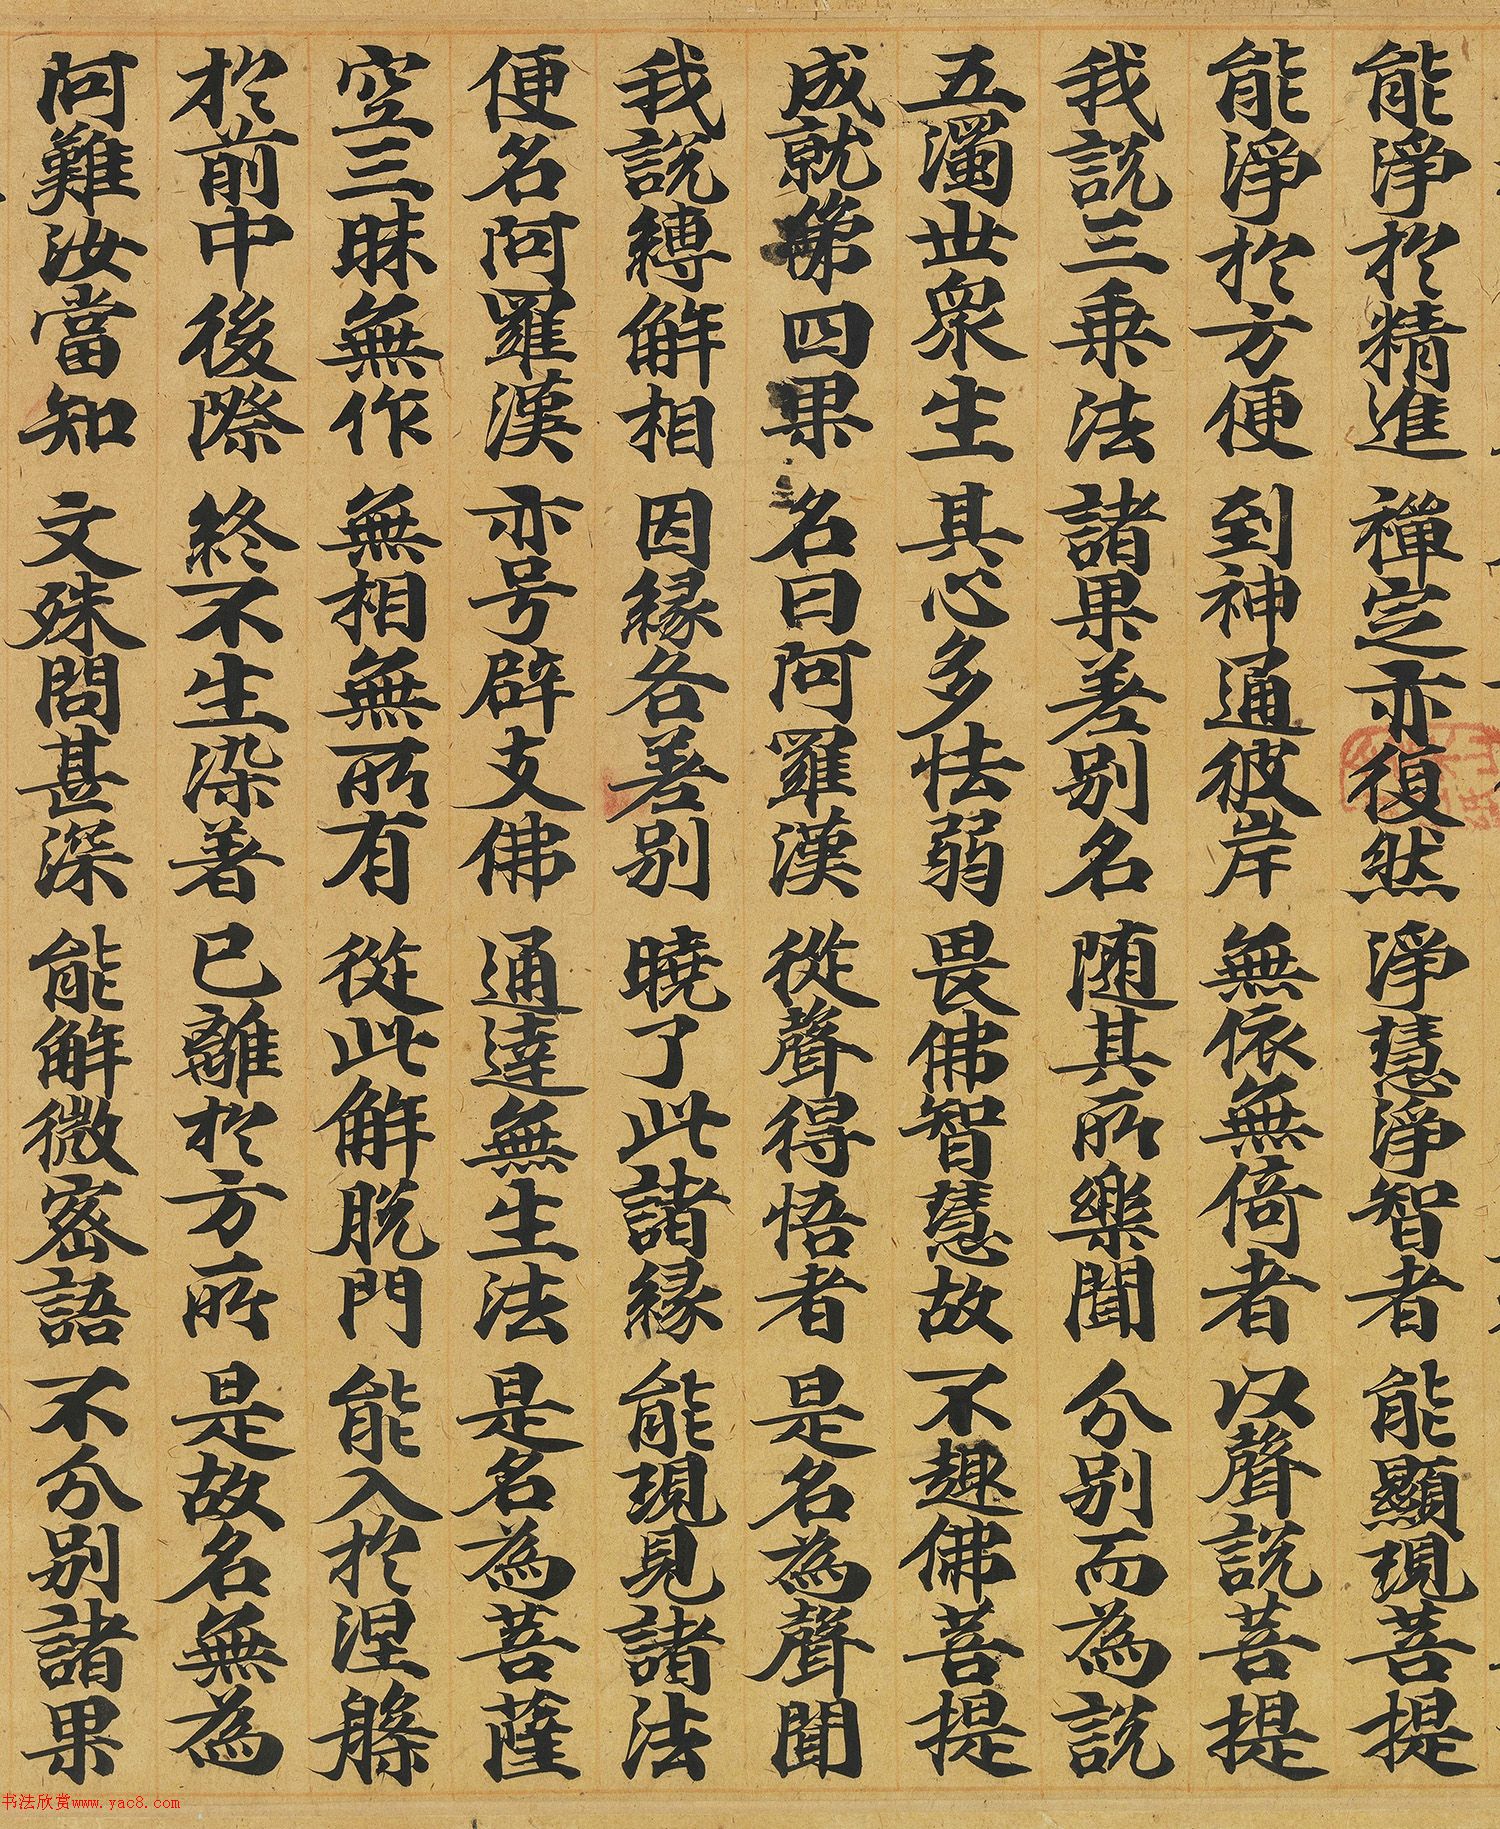 能淨於精進禪定亦復然淨慧淨智者能顯現菩提
能淨於方便到神通彼岸無依無倚者以聲說菩提
我說三乗法諸果差别名随其所樂聞分别而為說
五濁世衆生其心多怯弱畏佛智慧故不趣佛菩提
成就第四果名曰阿羅漢從聲得悟者是名為聲聞
我說縛解相因緣各差别曉了此諸緣能現見諸法
便名阿羅漢亦号辟支佛通達無生法是名為菩薩
空三昧無作無相無所有從此解脫門能入於涅槃
於前中後際終不生染著已離於方所是故名無為
阿難汝當知文殊問甚深能解微密語不分别諸果
书法欣赏www.yac8.com